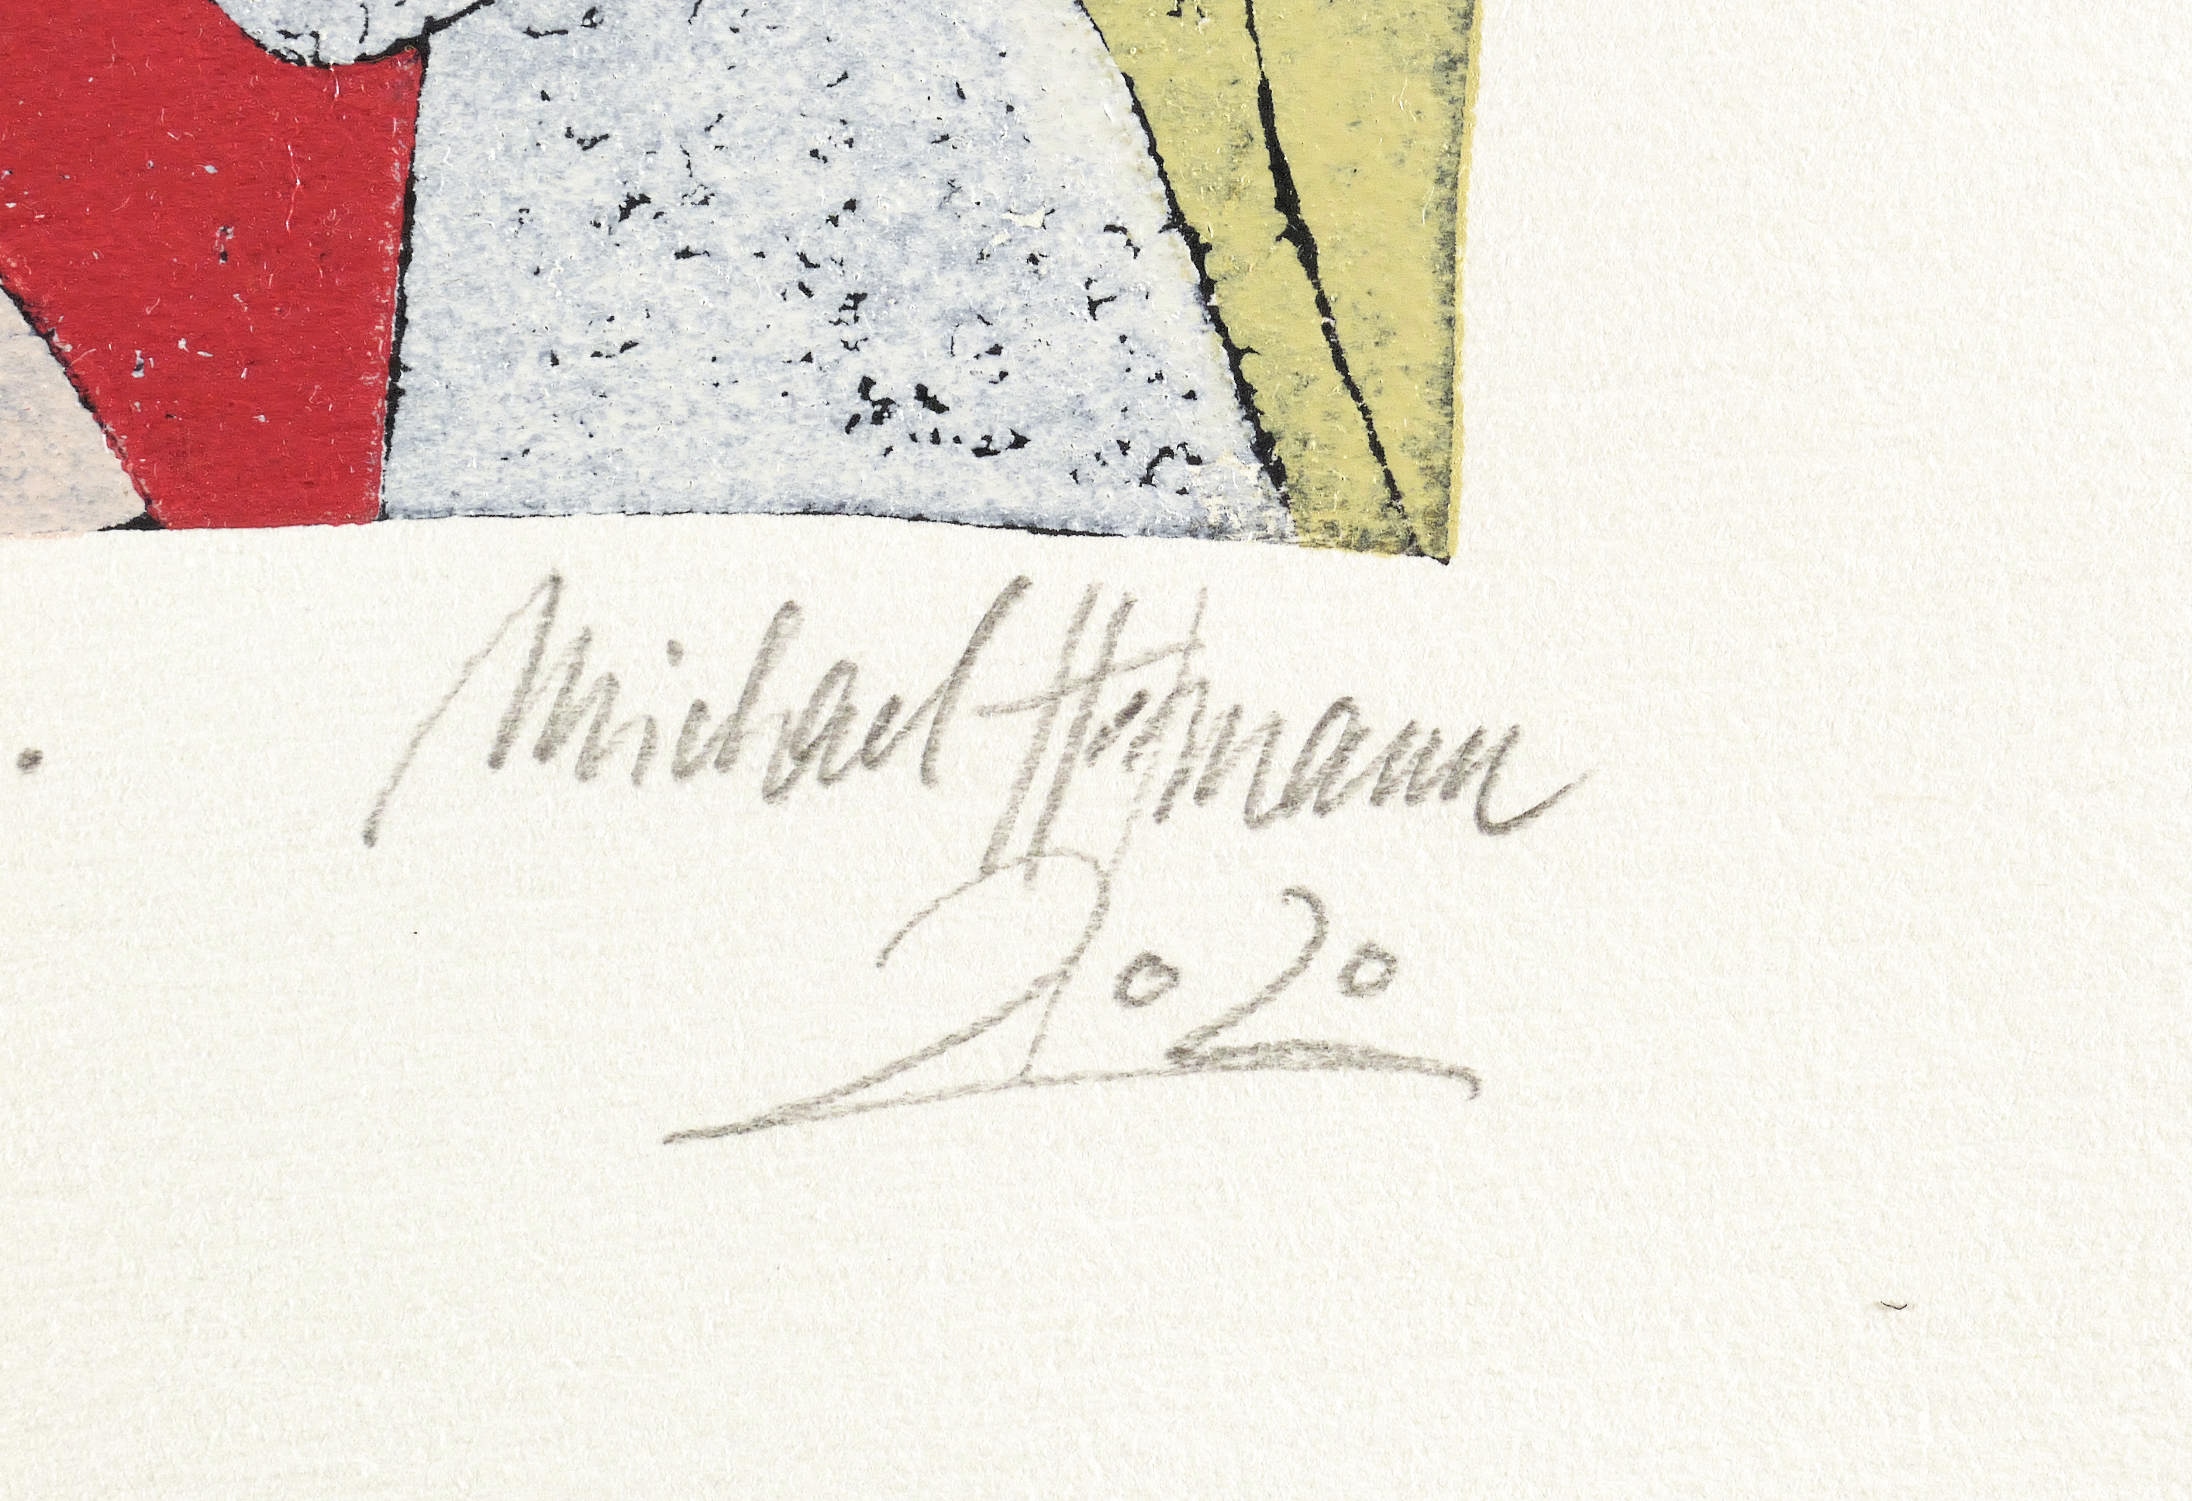 Michael Hofmann
2020